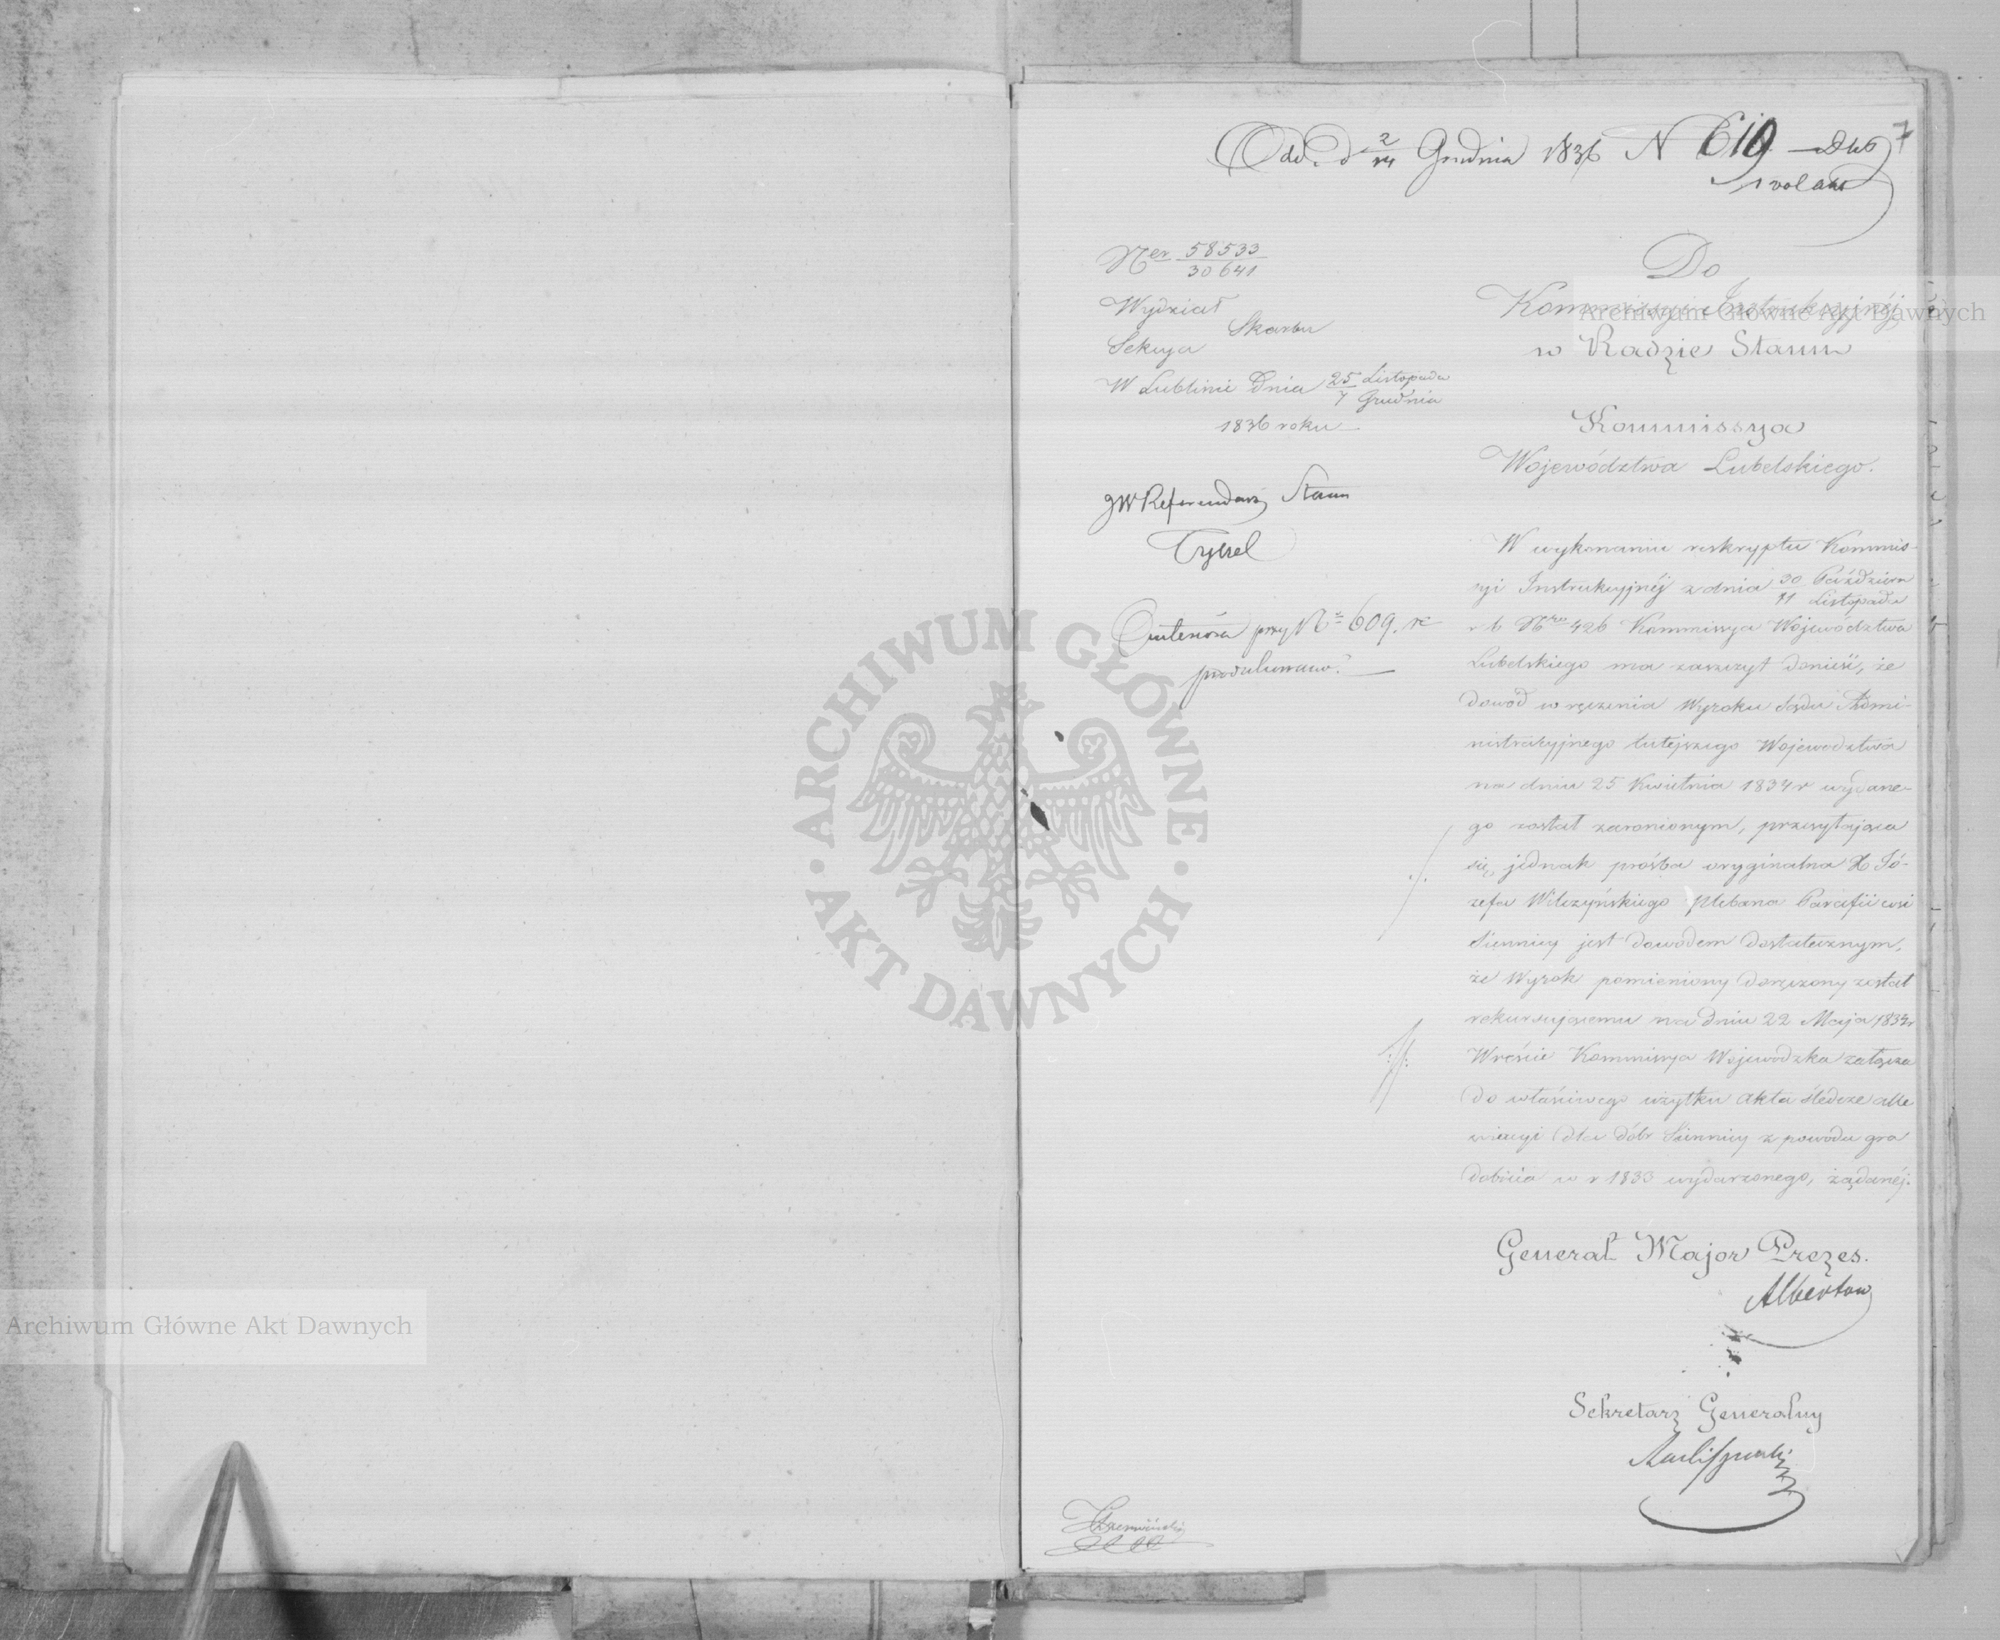 Odd. d 2/14 Grudnia 1836 N 619
1 vol akt
7
Ner 58533/30641
Wydział
Skarbu
Sekcya
W Lublinie Dnia 25 Listopada / 7 Grudnia
1836 roku
JW Referendarz Stanu
Tyssel
przy Nr 609.
Do
Kommissyi Instrukcyjnéj
w Radzie Stanu
Kommissya
Województwa Lubelskiego.
W wykonaniu reskryptu Kommis-
syi Instrukcyjnéj z dnia 30 Paździer / 11 Listopada
r b Nro 426 Kommissya Województwa
Lubelskiego ma zaszczyt donieść, że
dowód wręczenia Wyroku Sądu Admi-
nistracyjnego tutejszego Województwa
na dniu 25 Kwietnia 1834 r wydane-
go został zaronionym, przesyłająca
się jednak prośba oryginalna X Jó-
zefa Wilczyńskiego Plebana Parafii wsi
Siennicy jest dowodem dostatecznym,
że Wyrok pomieniony doręczony został
rekursującemu na dniu 22 Maja 1834 r
Wreście Kommissya Wojewódzka załącza
do właściwego użytku akta śledcze alle
wiacyi dla dóbr Siennicy z powodu gra
dobicia w r 1833 wydarzonego, żądanéj.
Generał Major Prezes.
Albertow
Sekretarz Generalny
Archiwum Główne Akt Dawnych
Archiwum Główne Akt Dawnych
ARCHIWUM GŁÓWNE AKT DAWNYCH